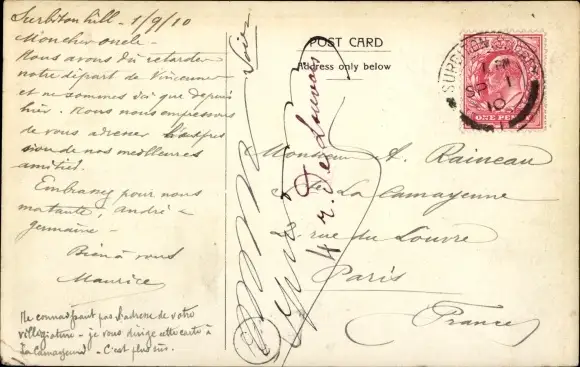 Surbiton hill - 1/9/10
Mon cher oncle -
Nous avons dû retarder
notre départ de Vincennes
et ne sommes ici que depuis
hier. Nous nous empressons
de vous adresser l'expres
sion de nos meilleures
amitiés.
Embrassez pour nous
ma tante, andré -
Germaine -
Bien à vous
Maurice
Ne connaissant pas l'adresse de votre
villégiature - je vous dirige cette carte à
La Camayenne - C'est plus sûr.
POST CARD
Address only below
SURBITON
SP 1
10
ONE PENNY
Monsieur A. Raineau
La Camayenne
rue du Louvre
Paris
France
4 r. De Louvois